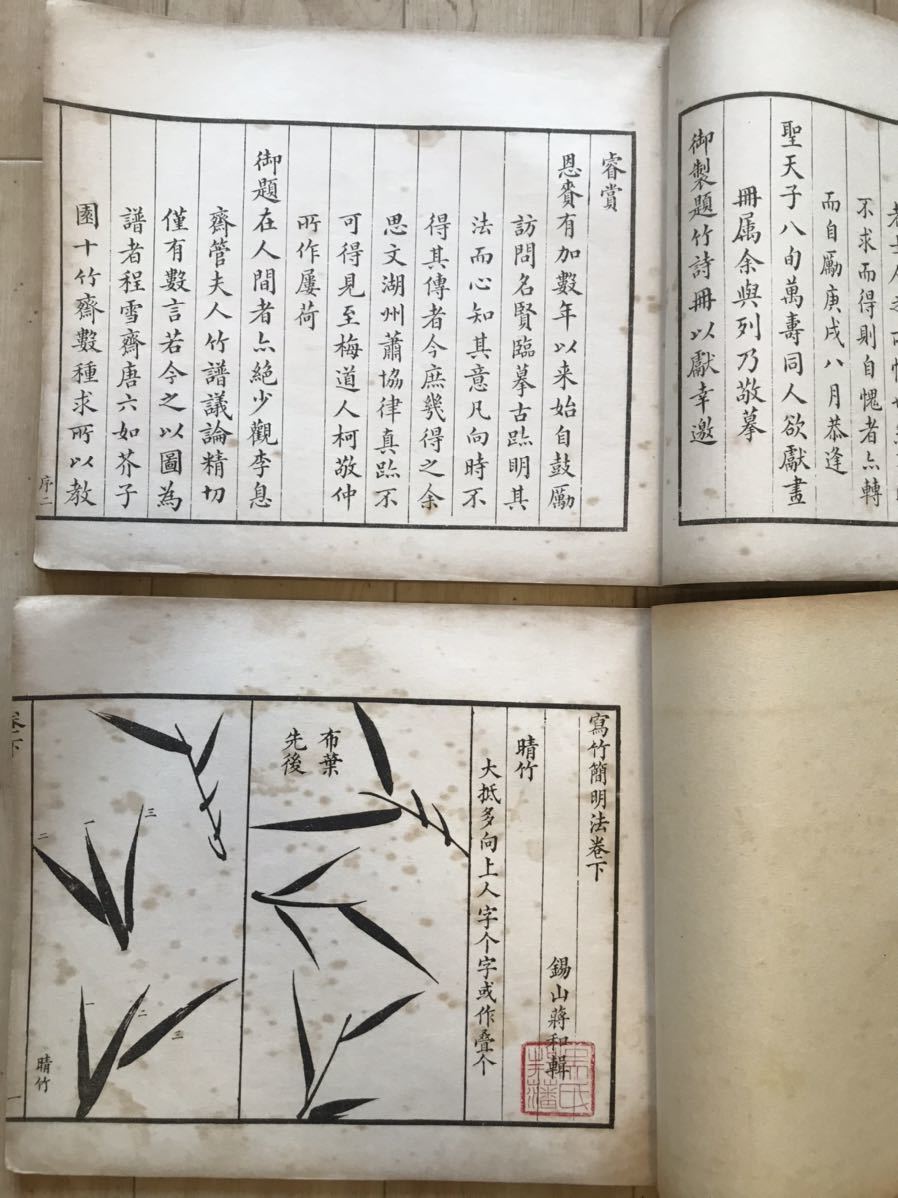 不求而得則自愧者亦轉
而自勵庚戌八月恭逢
聖天子八旬萬壽同人欲獻畫
冊属余與列乃敬摹
御製題竹詩冊以獻幸邀
睿賞
恩賚有加數年以来始自鼓勵
訪問名賢臨摹古跡明其
法而心知其意凡向時不
得其傳者今庶幾得之余
思文湖州蕭協律真跡不
可得見至梅道人柯敬仲
所作屢荷
御題在人間者亦絶少觀李息
齋管夫人竹譜議論精切
僅有數言若今之以圖為
譜者程雪齋唐六如芥子
園十竹齋數種求所以教
序二
寫竹簡明法卷下
錫山蔣和輯
晴竹
大抵多向上人字个字或作疊个
布葉
先後
三
一
二
一
二
三
晴竹
卷下
一